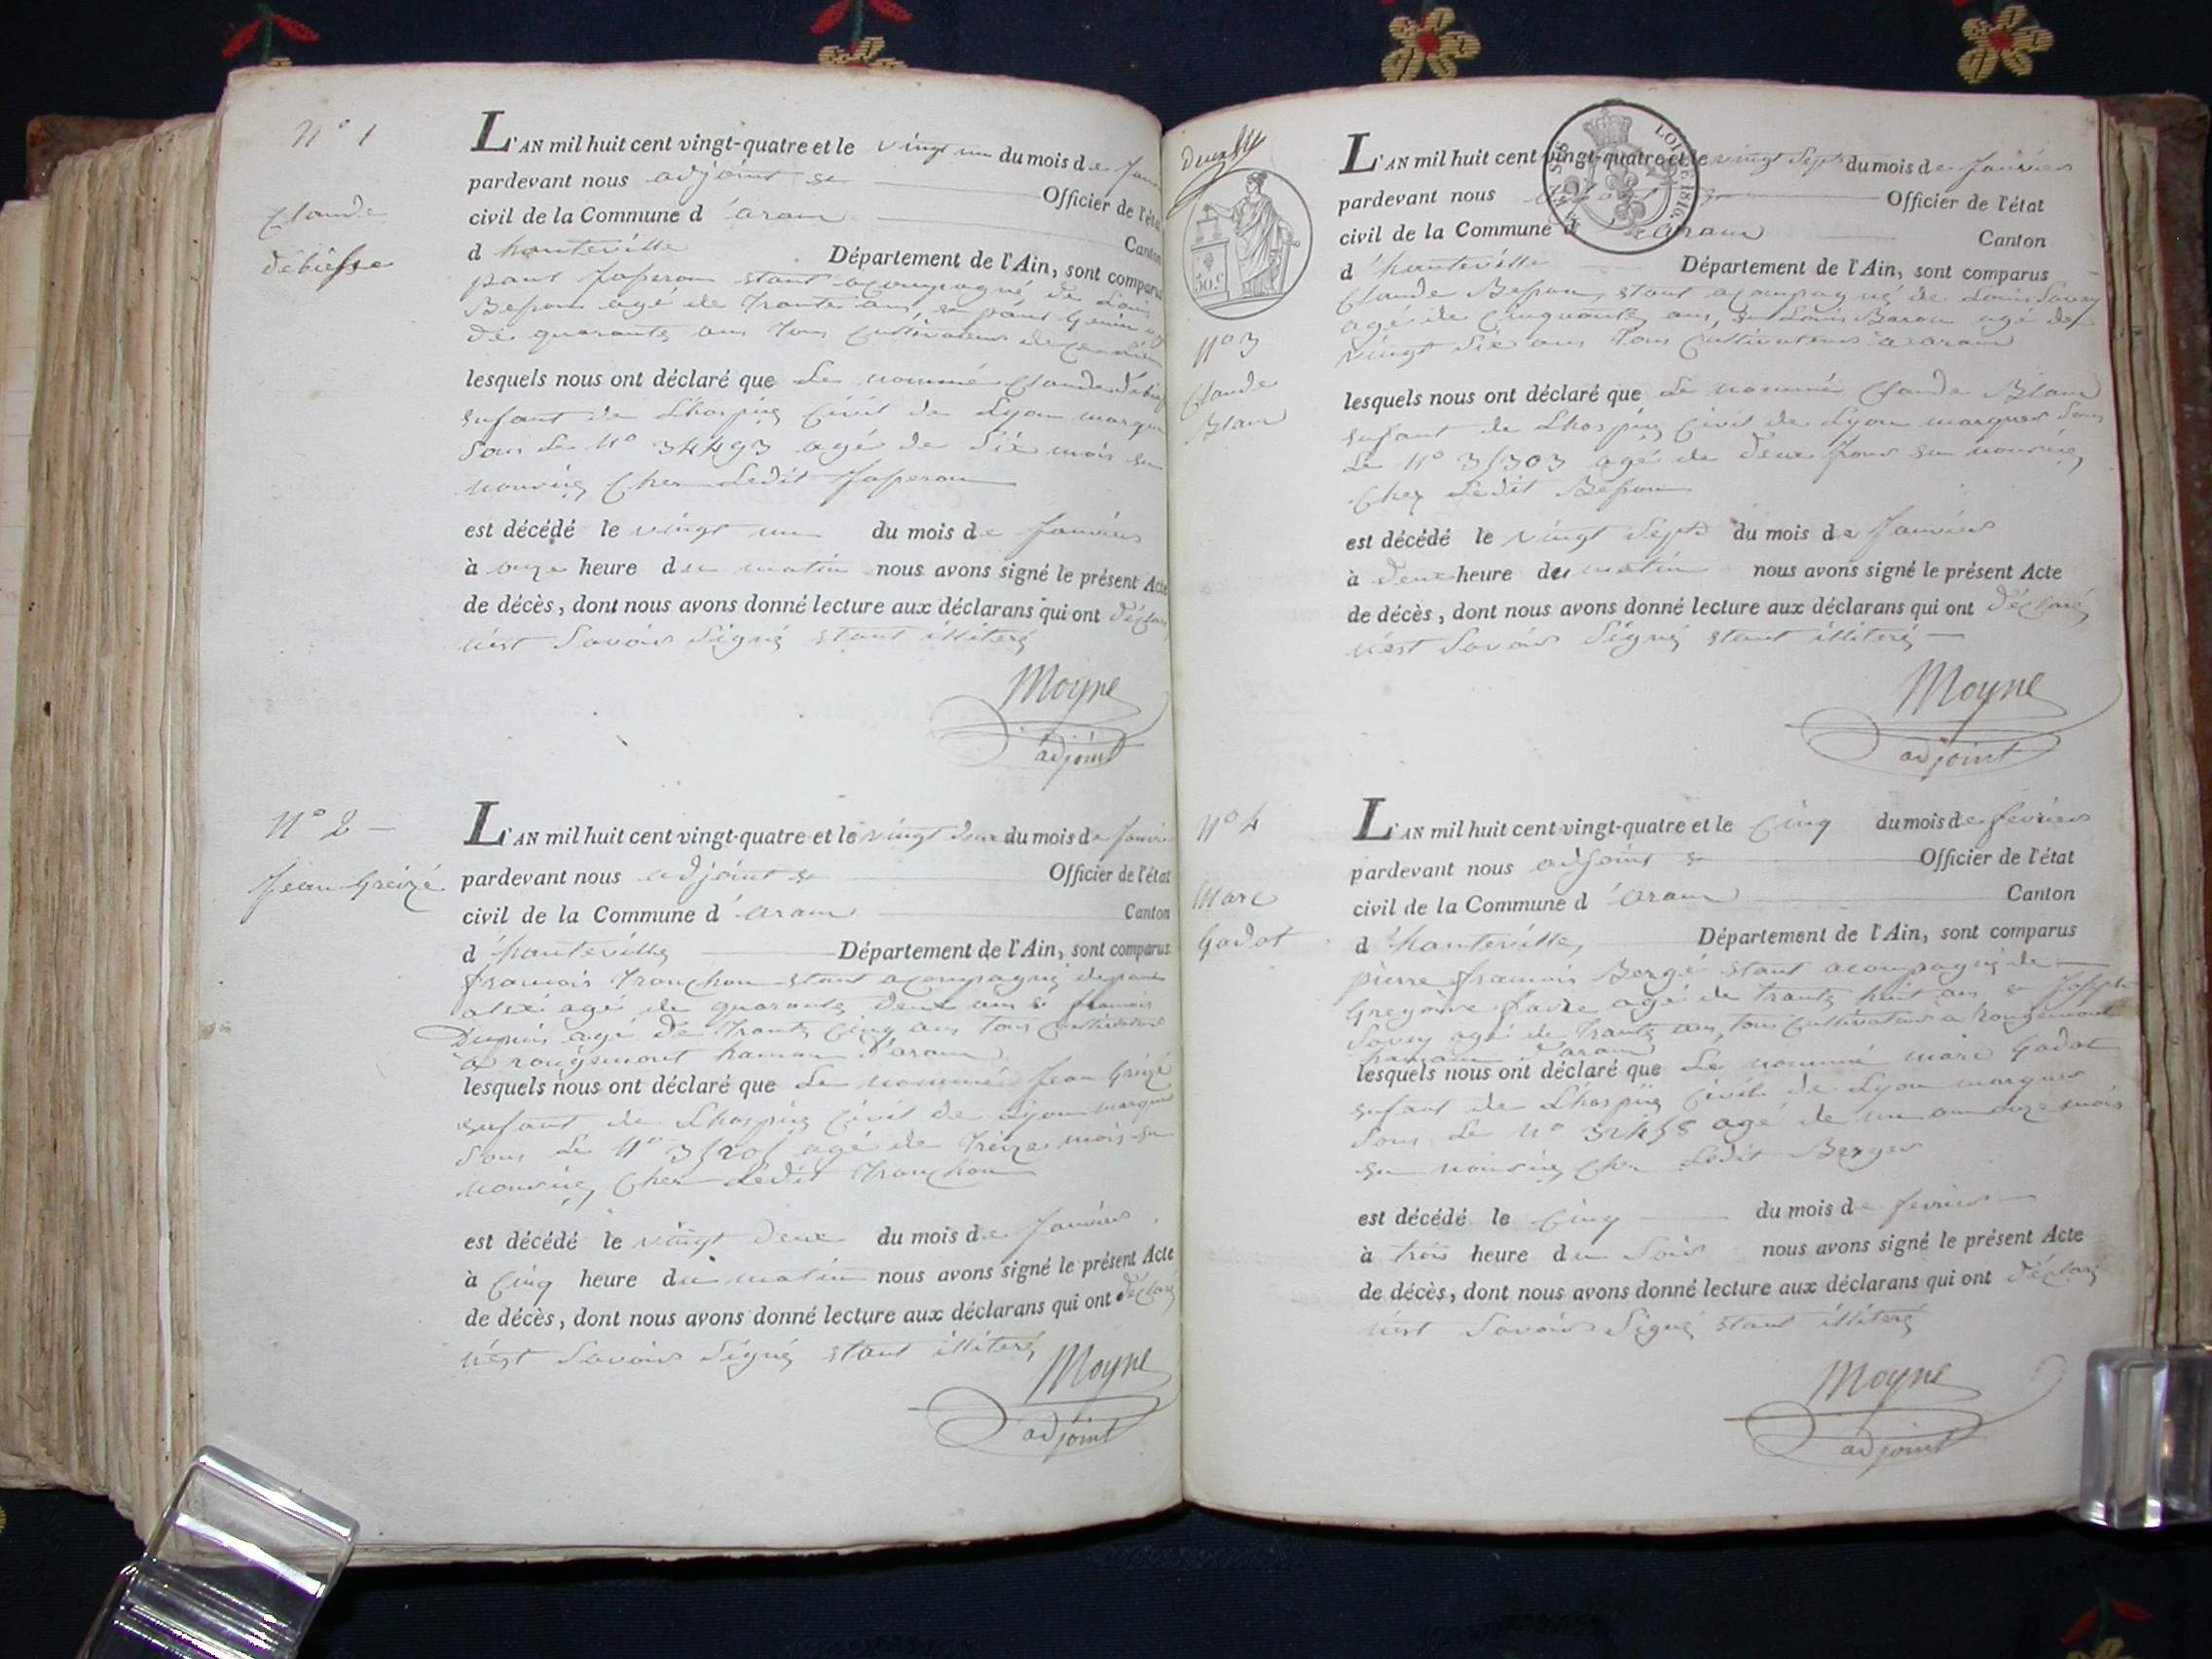 N° 1
Claude
débiesse
L'AN mil huit cent vingt-quatre et le vingt un du mois de
pardevant nous adjoint Officier de l'état
civil de la Commune d'aran Canton
d hauteville Département de l'Ain, sont comparus
paul Josserou etant acompagné de Louis
Besson agé de trante ans, et paul Genin
de quarante ans tous cultivateurs
lesquels nous ont déclaré que Le nommé Claude
enfant de Lhospice Civil de Lyon
Sous Le N° 34493 agé de Six mois en
nourice Cher Ledit Josserou
est décédé le vingt un du mois de Janvier
à onze heure du matin nous avons signé le présent Acte
de décès, dont nous avons donné lecture aux déclarans qui ont
n'est Savoir Signé etant illiteré
Moyne
adjoint
N° 2 —
Jean Greizé
L'AN mil huit cent vingt-quatre et le vingt deux du mois de Janvier
pardevant nous adjoint Officier de l'état
civil de la Commune d'aran Canton
d'hauteville Département de l'Ain, sont comparus
francois Tronchon etant acompagné de paul
alex agé de quarante deux ans et francois
Dupuis agé de trante cinq ans tous cultivateurs
a rougemont hamau d'aran
lesquels nous ont déclaré que Le nommé Jean Greizé
enfant de Lhospice Civil de Lyon marqué
Sous Le N° 35205 agé de treize mois en
nourice Cher Ledit Tronchon
est décédé le vingt deux du mois de Janvier
à cinq heure du matin nous avons signé le présent Acte
de décès, dont nous avons donné lecture aux déclarans qui ont déclaré
n'est Savoir Signé etant illiteré
Moyne
adjoint
50 c.
LOI DE 1816.
N° 3
Claude
Blan
L'AN mil huit cent vingt-quatre et le vingt Sept du mois de Janvier
pardevant nous Officier de l'état
civil de la Commune d'aran Canton
d'hauteville Département de l'Ain, sont comparus
Claude Besson, etant acompagné de Louis Savey
agé de cinquante ans, et Louis Baron agé de
vingt Six ans tous cultivateurs a aran
lesquels nous ont déclaré que Le nommé Claude Blan
enfant de Lhospice Civil de Lyon marquer Sous
Le N° 35303 agé de deux Jours en nourice
Chez Ledit Besson
est décédé le vingt Sept du mois de Janvier
à deux heure du matin nous avons signé le présent Acte
de décès, dont nous avons donné lecture aux déclarans qui ont déclaré
n'est Savoir Signé etant illiteré —
Moyne
adjoint
N° 4
Marc
Godot
L'AN mil huit cent vingt-quatre et le cinq du mois de février
pardevant nous adjoint Officier de l'état
civil de la Commune d'aran Canton
d'hauteville, Département de l'Ain, sont comparus
pierre francois Bergé etant acompagné de
Gregoire favre agé de trante huit ans et Joseph
Savey agé de trante ans, tous cultivateurs a rougemont
hamau d'aran
lesquels nous ont déclaré que Le nommé marc Godot
enfant de Lhospice Civil de Lyon marquer
Sous Le N° 32458 agé de un an onze mois
en nourice Cher Ledit Berger
est décédé le cinq du mois de fevrier —
à trois heure du Soir nous avons signé le présent Acte
de décès, dont nous avons donné lecture aux déclarans qui ont déclaré
n'est Savoir Signé etant illiteré
Moyne
adjoint